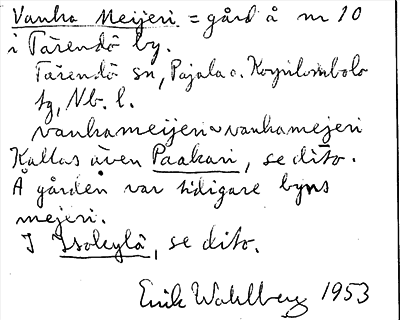 Vanha Meijeri = gård å nr 10
i Tärendö by.
Tärendö sn, Pajala o. Korpilombolo
tg, Nb. l.
vanhameijeri ~ vanhamejeri
Kallas även Paakari, se dito.
Å gården var tidigare byns
mejeri.
I Isokylä, se dito.
Erik Wahlberg 1953